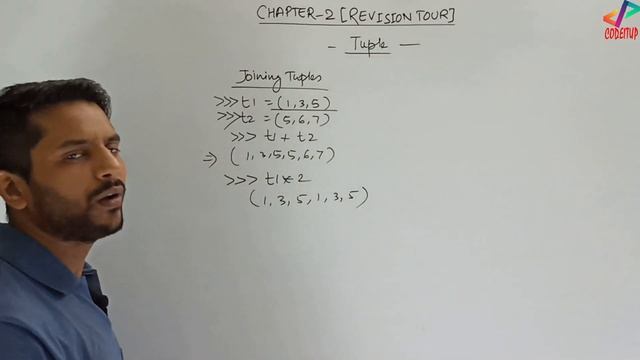 CHAPTER-2 [REVISION TOUR]
CODEITUP
- Tuple -
Joining Tuples
>>> t1 = (1,3,5)
>>> t2 = (5,6,7)
>>> t1 + t2
⇒ (1,3,5,5,6,7)
>>> t1 * 2
(1,3,5,1,3,5)